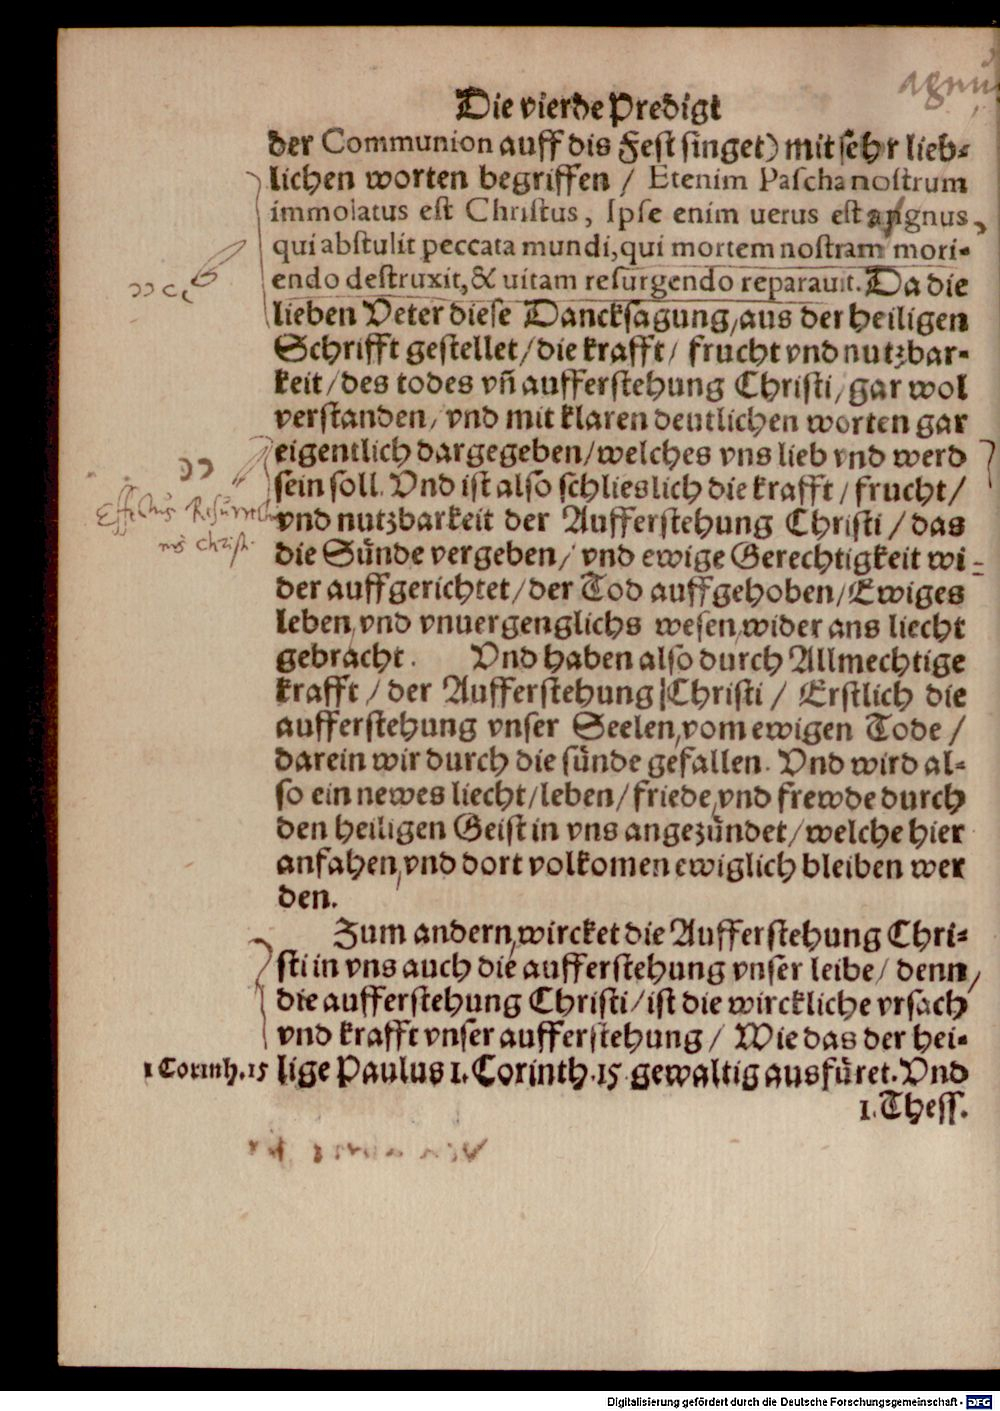 agnu
Die vierde Predigt
der Communion auff dis Fest singet) mit sehr lieb-
lichen worten begriffen / Etenim Pascha nostrum
immolatus est Christus, Ipse enim uerus est agnus,
qui abstulit peccata mundi, qui mortem nostram mori-
endo destruxit, & uitam resurgendo reparauit. Da die
lieben Veter diese Dancksagung / aus der heiligen
Schrifft gestellet / die krafft / frucht vnd nutzbar-
keit / des todes vñ aufferstehung Christi / gar wol
verstanden / vnd mit klaren deutlichen worten gar
eigentlich dargegeben / welches vns lieb vnd werd
sein soll. Vnd ist also schlieslich die krafft / frucht /
Effectus Resurrectio
vnd nutzbarkeit der Aufferstehung Christi / das
nis Christi.
die Sünde vergeben / vnd ewige Gerechtigkeit wi-
der auffgerichtet / der Tod auffgehoben / Ewiges
leben, vnd vnuergenglichs wesen, wider ans liecht
gebracht. Vnd haben also durch Allmechtige
krafft / der Aufferstehung Christi / Erstlich die
aufferstehung vnser Seelen, vom ewigen Tode /
darein wir durch die sünde gefallen. Vnd wird al-
so ein newes liecht / leben / friede, vnd frewde durch
den heiligen Geist in vns angezündet / welche hier
anfahen, vnd dort volkomen ewiglich bleiben wer
den.
Zum andern, wircket die Aufferstehung Chri-
sti in vns auch die aufferstehung vnser leibe / denn /
die aufferstehung Christi / ist die wirckliche vrsach
vnd krafft vnser aufferstehung / Wie das der hei-
1 Corinth. 15 lige Paulus 1. Corinth. 15 gewaltig ausfüret. Vnd
1. Thess.
Digitalisierung gefördert durch die Deutsche Forschungsgemeinschaft - DFG